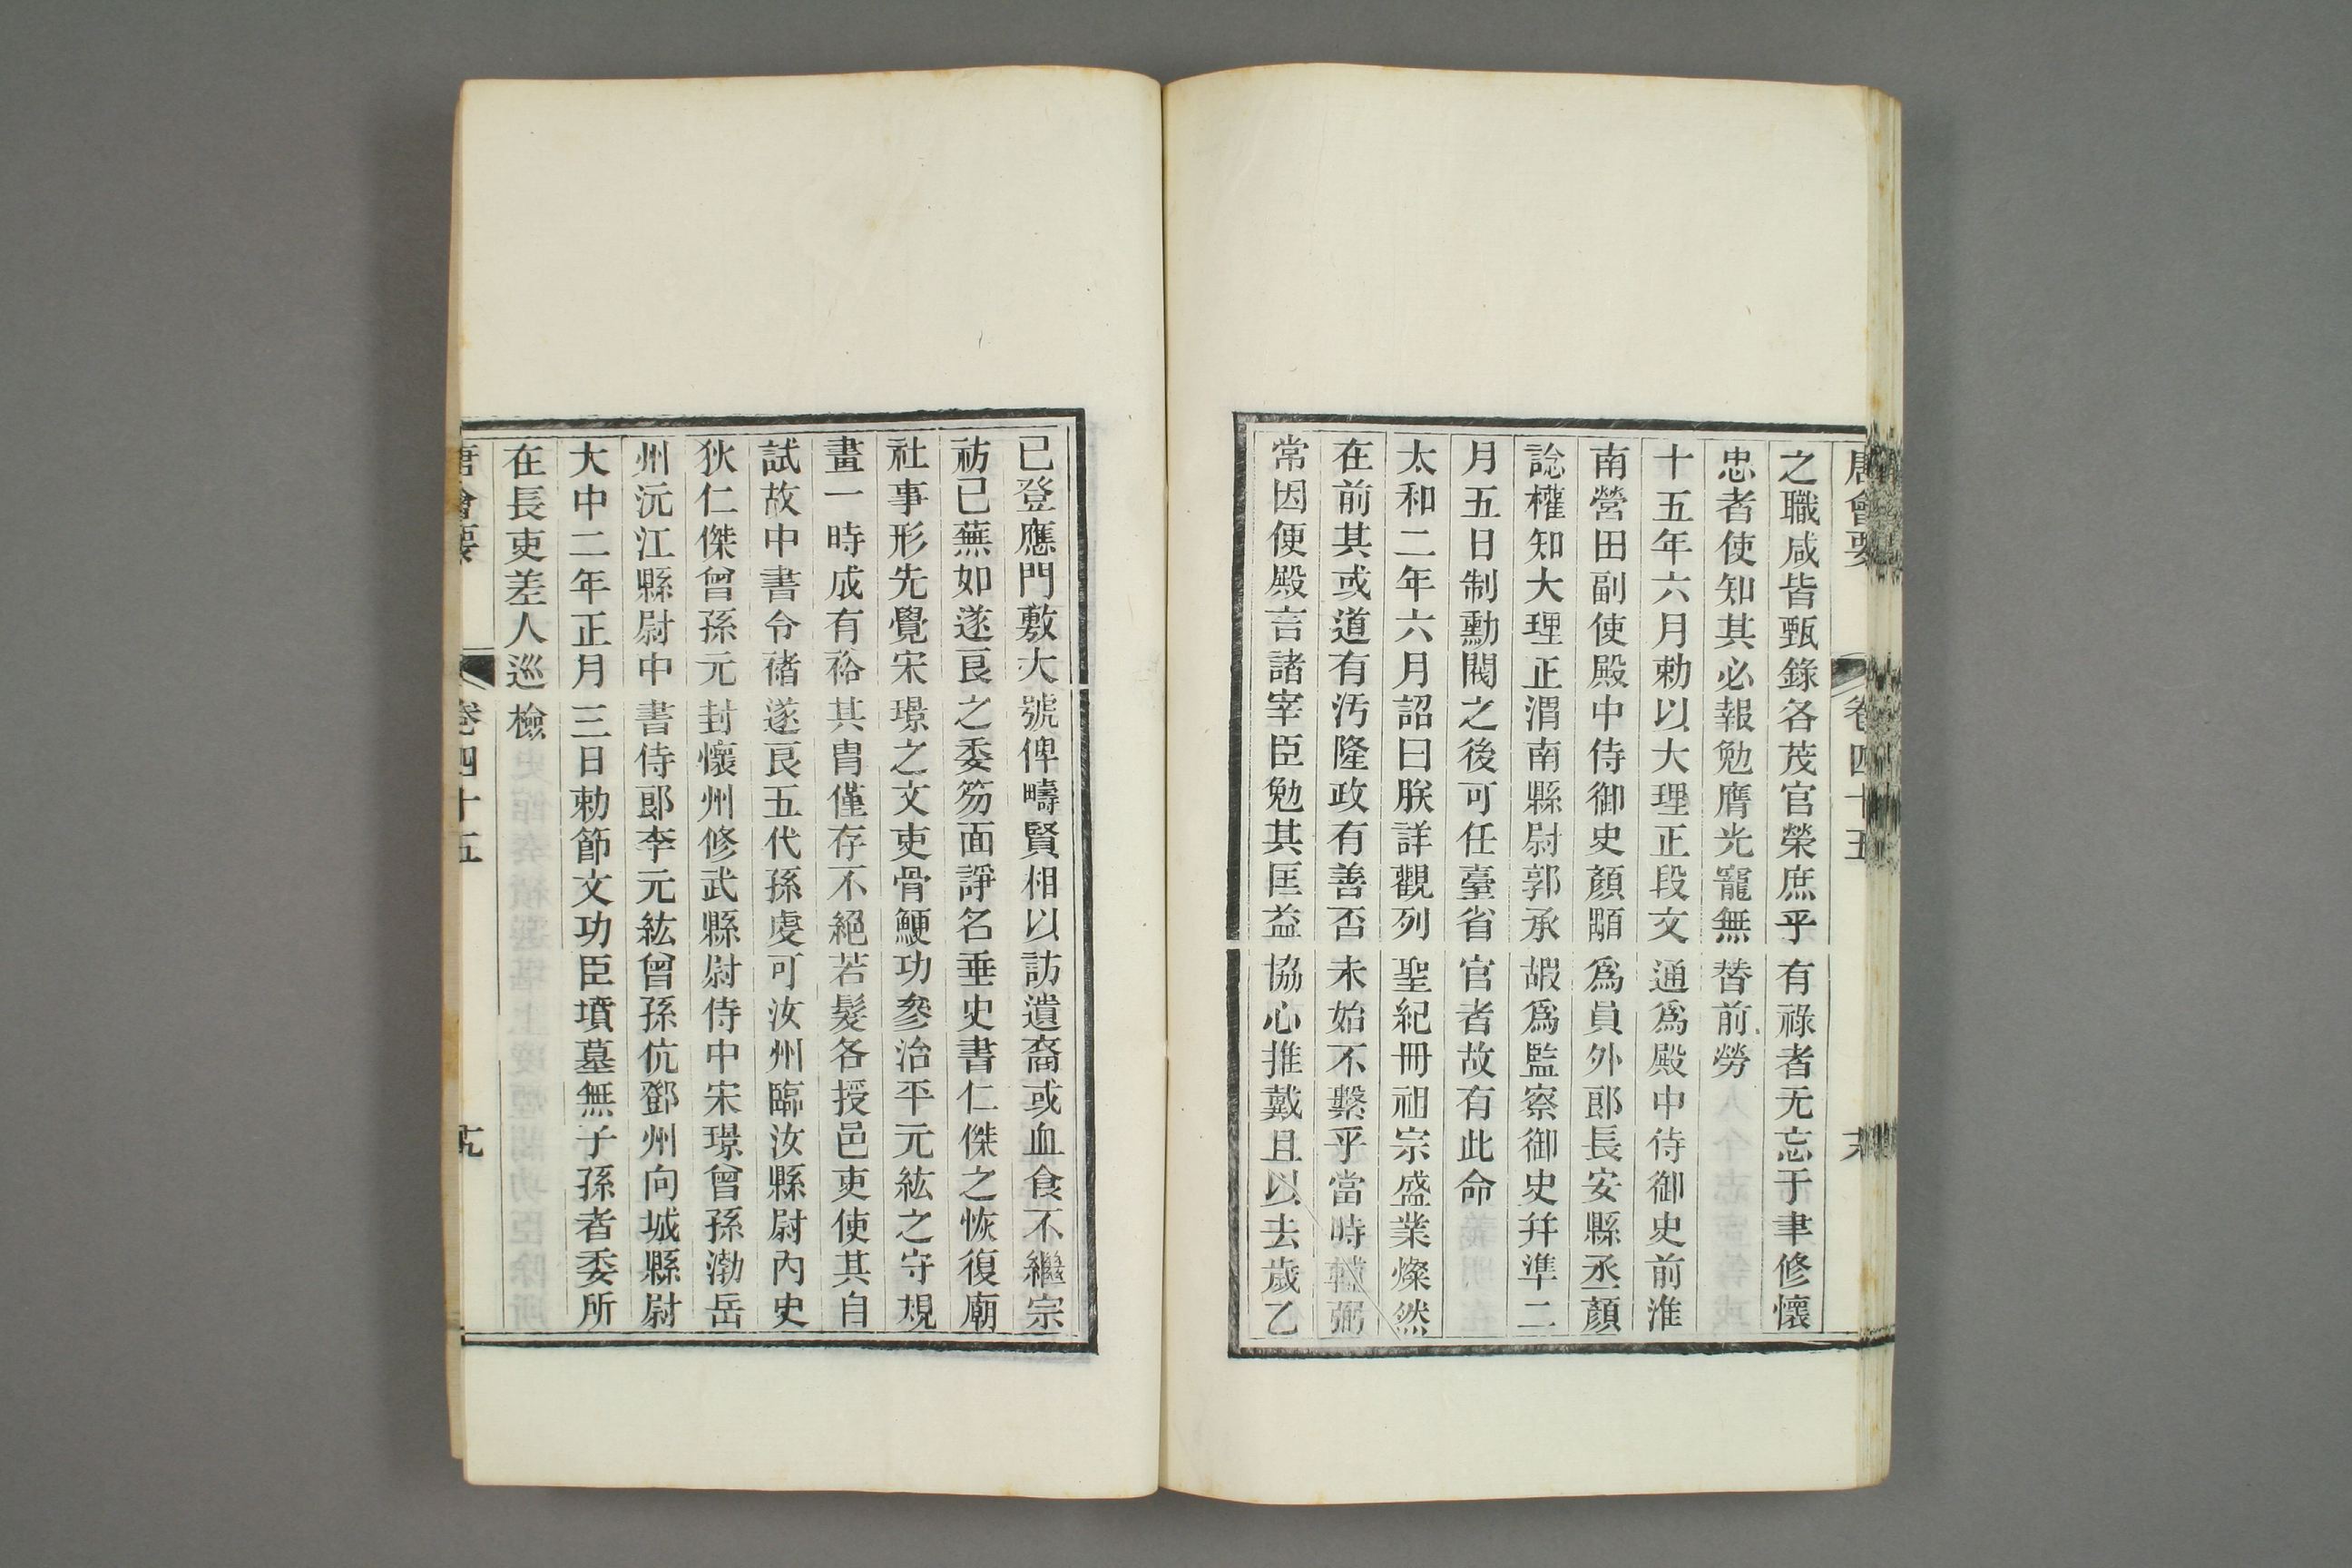 唐會要 卷四十五
之職咸皆甄錄各茂官榮庶乎有祿者无忘于聿修懷
忠者使知其必報勉膺光寵無替前勞
十五年六月勅以大理正段文通爲殿中侍御史前淮
南營田副使殿中侍御史顏顒爲員外郎長安縣丞顏
諗權知大理正渭南縣尉郭承嘏爲監察御史幷準二
月五日制勳閥之後可任臺省官者故有此命
太和二年六月詔曰朕詳觀列聖紀冊祖宗盛業燦然
在前其或道有汚隆政有善否未始不繫乎當時輔弼
常因便殿言諸宰臣勉其匡益協心推戴且以去歲乙
已登應門敷大號俾疇賢相以訪遺裔或血食不繼宗
祊已蕪如遂良之委笏面諍名垂史書仁傑之恢復廟
社事形先覺宋璟之文吏骨鯁功參治平元紘之守規
畫一時成有裕其胄僅存不絕若髮各授邑吏使其自
試故中書令褚遂良五代孫虔可汝州臨汝縣尉內史
狄仁傑曾孫元封懷州修武縣尉侍中宋璟曾孫渤岳
州沅江縣尉中書侍郎李元紘曾孫伉鄧州向城縣尉
大中二年正月三日勅節文功臣墳墓無子孫者委所
在長吏差人巡檢
唐會要 卷四十五